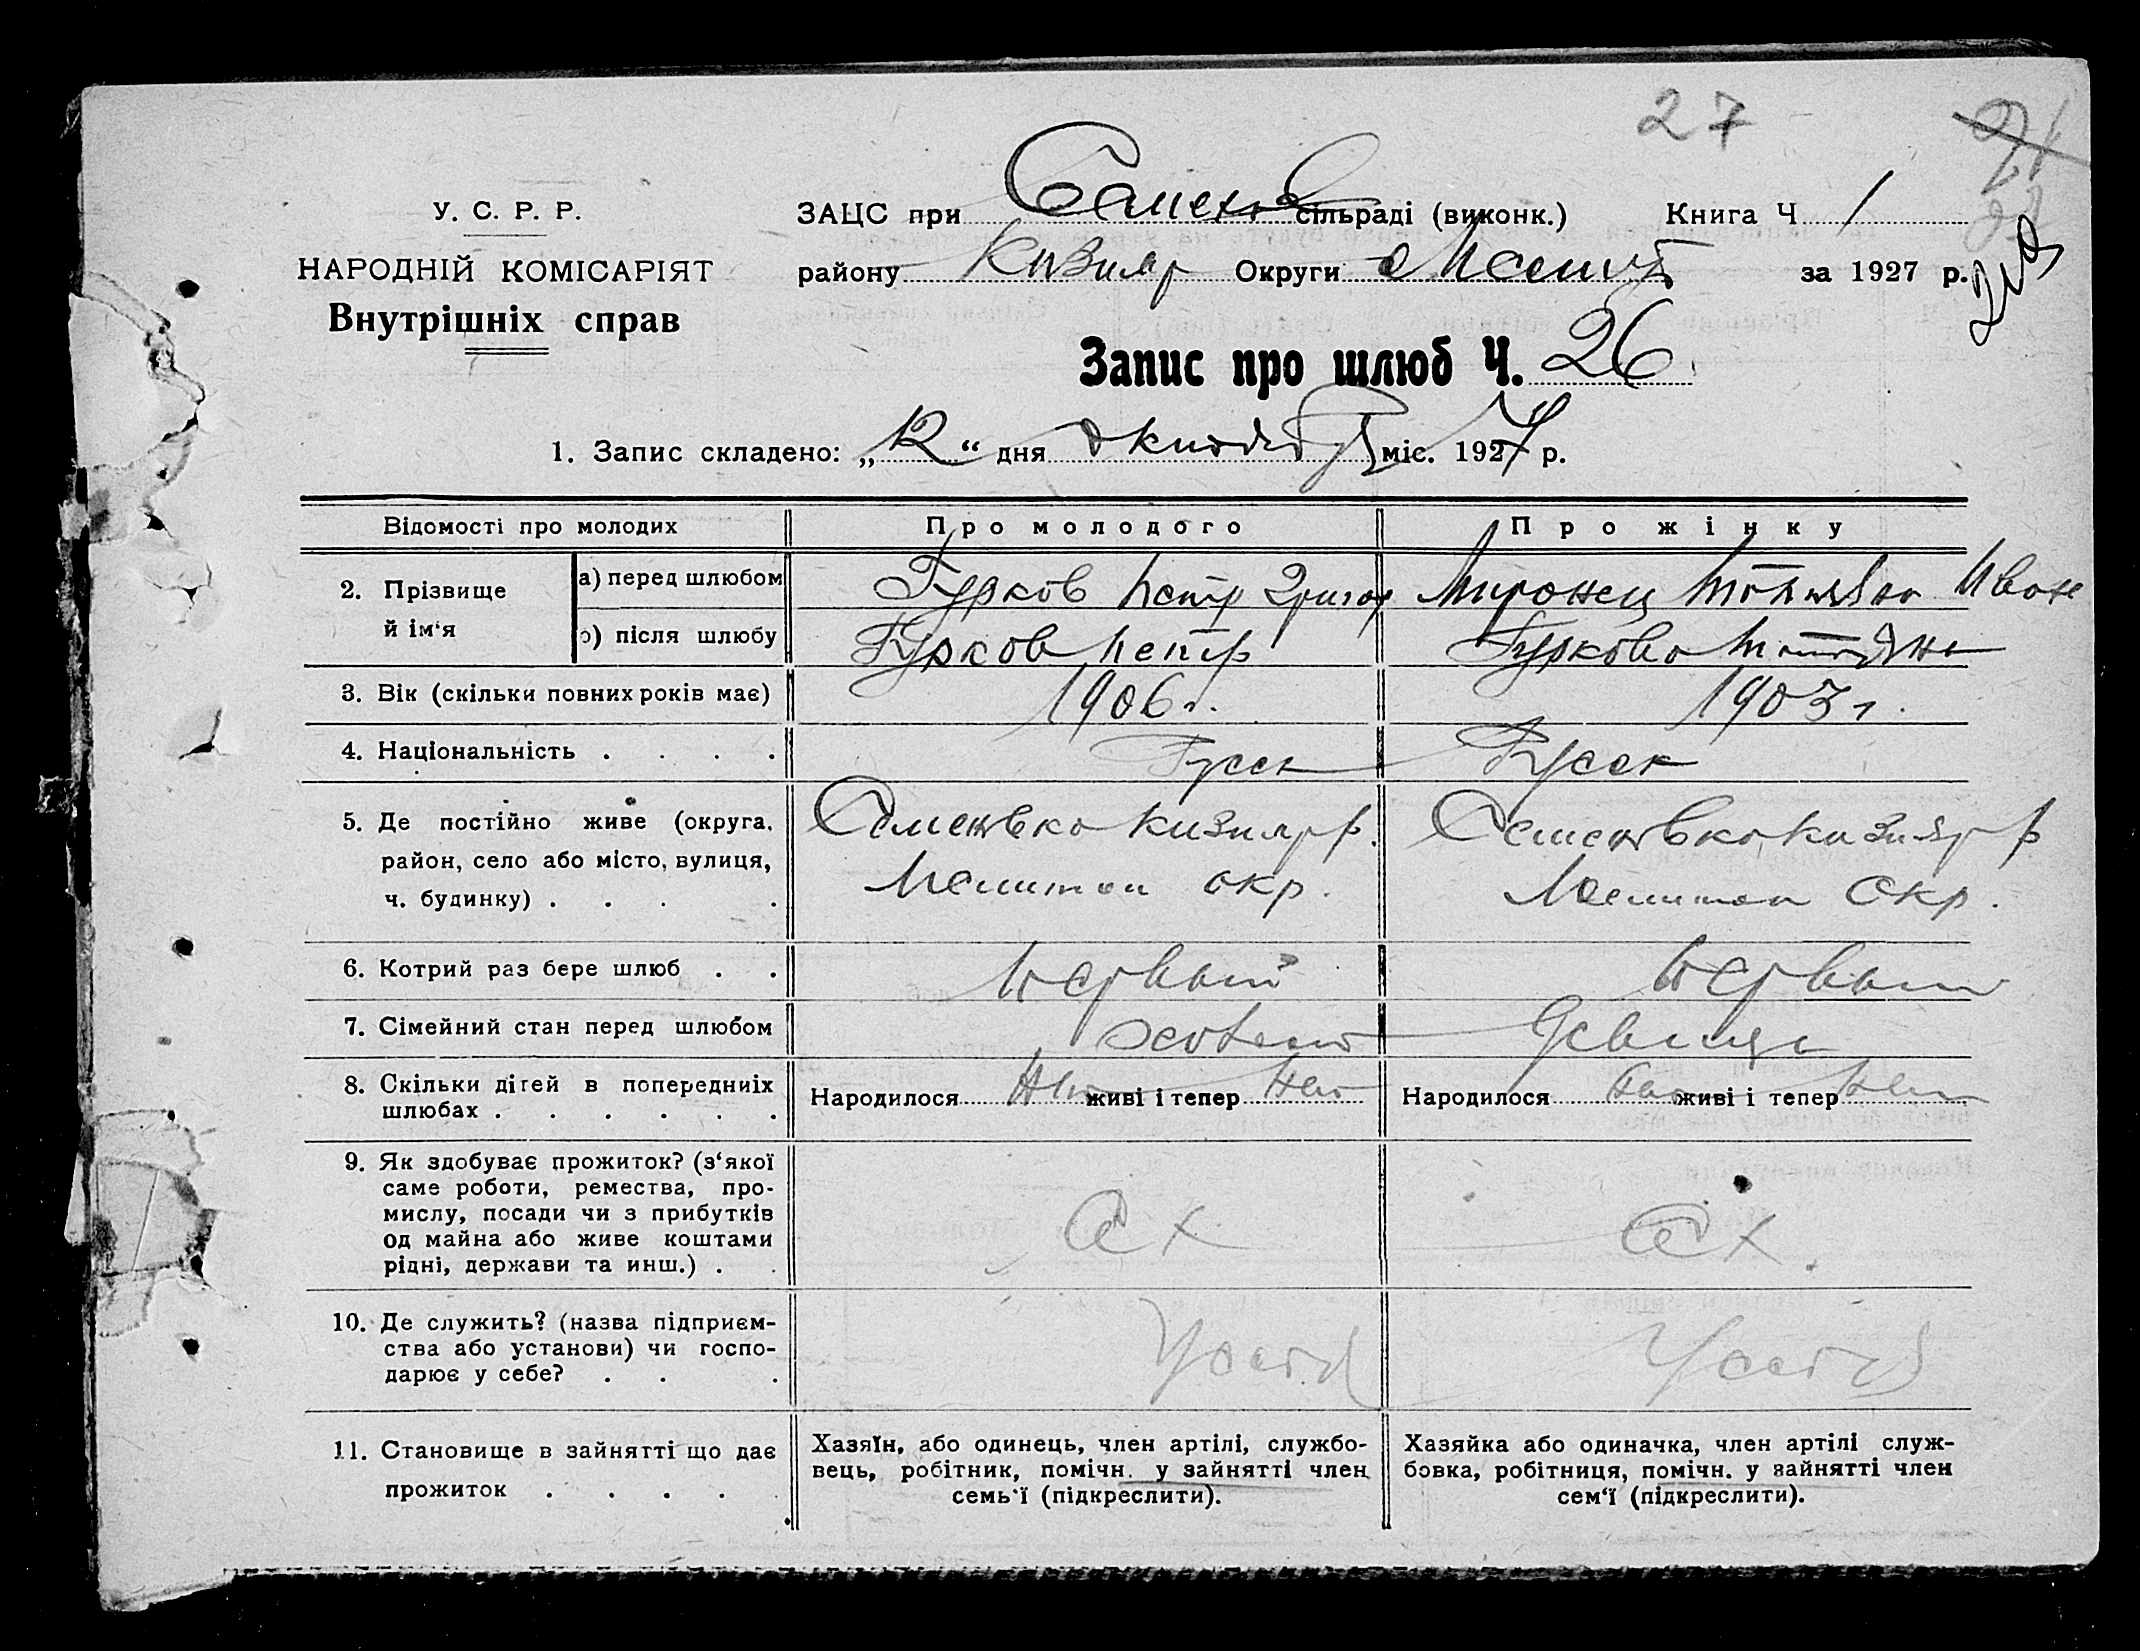 27
У. С. Р. Р.
НАРОДНІЙ КОМІСАРІЯТ
Внутрішніх справ
ЗАЦС при Семенов сільраді (виконк.) Книга Ч 1
району Кизияр Округи Мелит за 1927 р.
Запис про шлюб Ч. 26
1. Запис складено: „ 12 “ дня октября міс. 1927 р.
Відомості про молодих Про молодого Про жінку
2. Прізвище й ім‘я
а) перед шлюбом Гурков Петр Григор Миронец Татьяна Иван
б) після шлюбу Гурков Петр Гуркова Татьяна
3. Вік (скільки повних років має) 1906 г. 1903 г.
4. Національність . . . . Русск Русск
5. Де постійно живе (округа,
район, село або місто, вулиця,
ч. будинку) . . . .
Семеновка Кизияр р.
Мелитоп окр.
Семеновка Кизияр р
Мелитоп Окр.
6. Котрий раз бере шлюб . . Первый Первый
7. Сімейний стан перед шлюбом Холост Девица
8. Скільки дітей в попередниіх
шлюбах . . . . . .
Народилося Нет живі і тепер Нет Народилося Нет живі і тепер Нет
9. Як здобуває прожиток? (з‘якої
саме роботи, ремества, про-
мислу, посади чи з прибутків
од майна або живе коштами
рідні, держави та инш.) . .
СХ СХ.
10. Де служить? (назва підприєм-
ства або установи) чи госпо-
дарює у себе? . . .
11. Становище в зайнятті що дає
прожиток . . . . .
Хазяїн, або одинець, член артілі, службо-
вець, робітник, помічн. у зайнятті член
семь‘ї (підкреслити).
Хазяйка або одиначка, член артілі служ-
бовка, робітниця, помічн. у зайнятті член
сем‘ї (підкреслити).